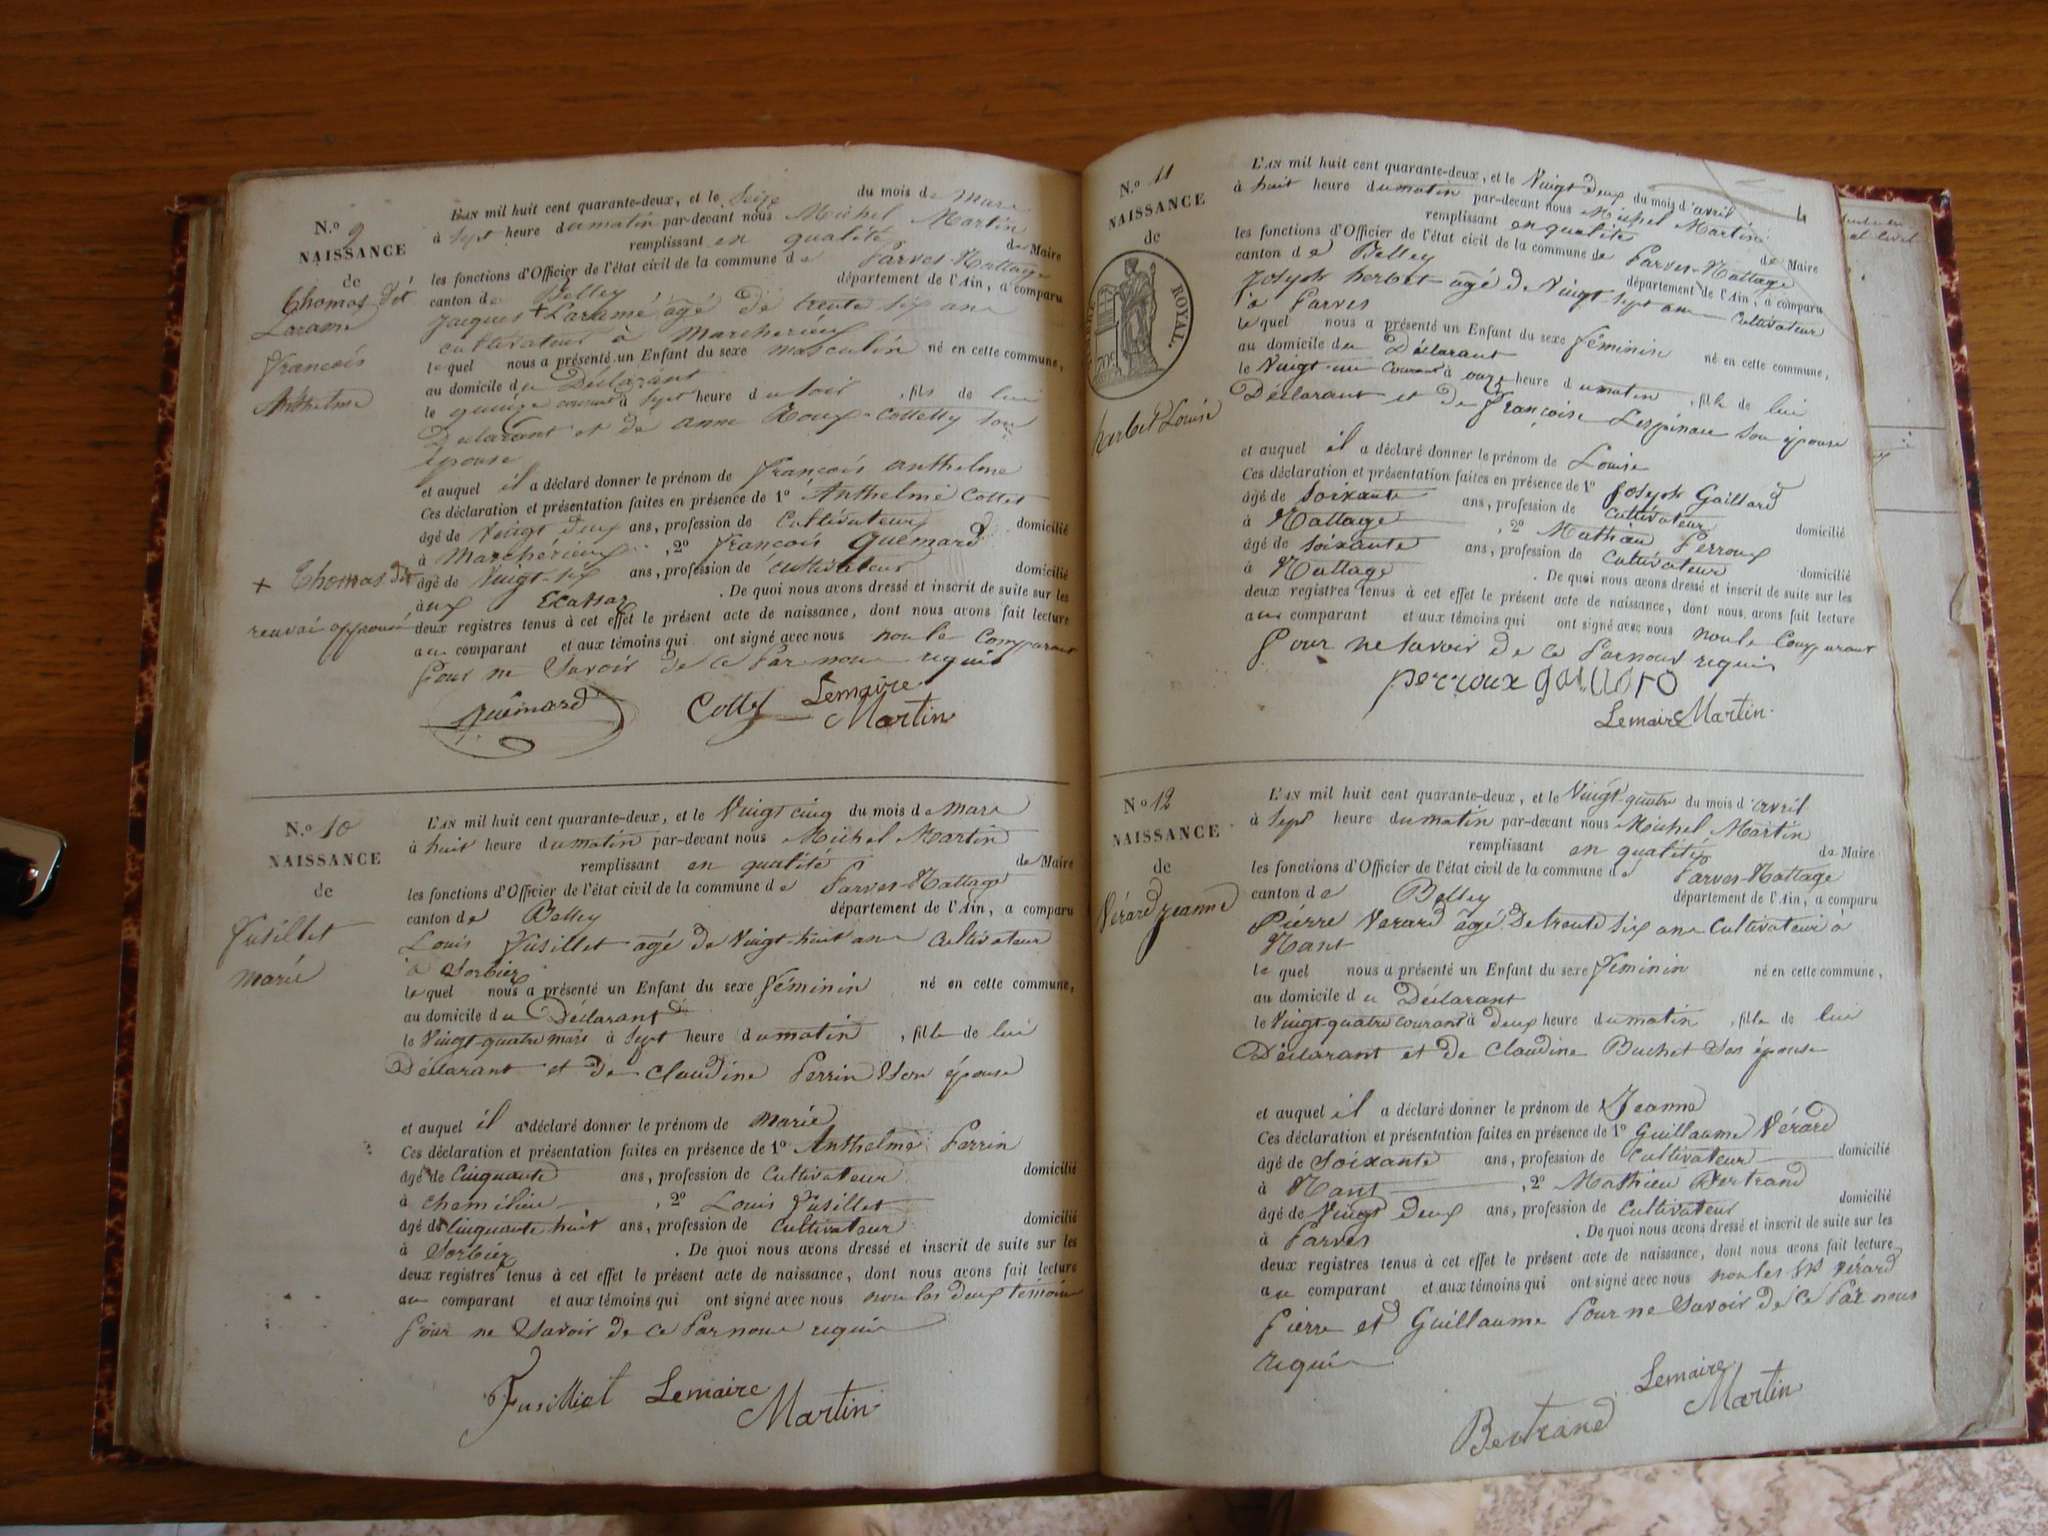 N.o 9
NAISSANCE
de
Thomas dit
Laramé
François
Anthelme
L'AN mil huit cent quarante-deux, et le Seize du mois de Mars
à Sept heure du matin par-devant nous Michel Martin
remplissant en qualité de Maire
les fonctions d'Officier de l'état civil de la commune de Parves-Nattage
canton de Belley département de l'Ain, a comparu
Jacques + Laramé agé de trente six ans
cultivateur à Marcherieu
lequel nous a présenté un Enfant du sexe masculin né en cette commune,
au domicile du Déclarant
le quinze courant à Sept heure du Soir, fils de lui
Déclarant et de anne Roux-Collety son
épouse
et auquel il a déclaré donner le prénom de François anthelme
Ces déclaration et présentation faites en présence de 1o Anthelme Collet
âgé de Vingt deux ans, profession de Cultivateur domicilié
à Marchérieux, 2o François Quémard
âgé de Vingt-Six ans, profession de Cultivateur domicilié
aux Ecassaz. De quoi nous avons dressé et inscrit de suite sur les
deux registres tenus à cet effet le présent acte de naissance, dont nous avons fait lecture
au comparant et aux témoins qui ont signé avec nous non le Comparant
Pour ne Savoir de ce Par nous requis
+ Thomas dit
renvoi approuvé
Quémard Collet Lemaire
Martin
N.o 10
NAISSANCE
de
Fusillet
marie
L'AN mil huit cent quarante-deux, et le Vingt cinq du mois de Mars
à huit heure du matin par-devant nous Michel Martin
remplissant en qualité de Maire
les fonctions d'Officier de l'état civil de la commune de Parves-Nattage
canton de Belley département de l'Ain, a comparu
Louis Fusillet agé de Vingt-huit ans Cultivateur
à Sorbier
lequel nous a présenté un Enfant du sexe Féminin né en cette commune,
au domicile du Déclarant
le Vingt-quatre mars à Sept heure du matin, fille de lui
Déclarant et de Claudine Perrin Son épouse
et auquel il a déclaré donner le prénom de Marie
Ces déclaration et présentation faites en présence de 1o Anthelme Perrin
âgé de Cinquante ans, profession de Cultivateur domicilié
à Chemilieu, 2o Louis Fusillet
âgé de Cinquante huit ans, profession de Cultivateur domicilié
à Sorbier. De quoi nous avons dressé et inscrit de suite sur les
deux registres tenus à cet effet le présent acte de naissance, dont nous avons fait lecture
au comparant et aux témoins qui ont signé avec nous non les deux témoins
Pour ne Savoir de ce Par nous requis
Fusilliet Lemaire
Martin
4
N.o 11
NAISSANCE
de
ROYAL.
herbet Louise
L'AN mil huit cent quarante-deux, et le Vingt deux du mois d'avril
à huit heure du matin par-devant nous Michel Martin
remplissant en qualité de Maire
les fonctions d'Officier de l'état civil de la commune de Parves-Nattage
canton de Belley département de l'Ain, a comparu
Joseph herbet agé de Vingt-Sept ans Cultivateur
à Parves
lequel nous a présenté un Enfant du sexe Féminin né en cette commune,
au domicile du Déclarant
le Vingt-un Courant à onze heure du matin, fille de lui
Déclarant et de Françoise Lespinasse Son épouse
et auquel il a déclaré donner le prénom de Louise
Ces déclaration et présentation faites en présence de 1o Joseph Gaillard
âgé de Soixante ans, profession de Cultivateur domicilié
à Nattage, 2o Mathieu Perroux
âgé de Soixante ans, profession de Cultivateur domicilié
à Nattage. De quoi nous avons dressé et inscrit de suite sur les
deux registres tenus à cet effet le présent acte de naissance, dont nous avons fait lecture
au comparant et aux témoins qui ont signé avec nous non le Comparant
Pour ne Savoir de ce Par nous requis
perroux gaillard
Lemaire Martin
No 12
NAISSANCE
de
Vérard Jeanne
L'AN mil huit cent quarante-deux, et le Vingt-quatre du mois d'avril
à Sept heure du matin par-devant nous Michel Martin
remplissant en qualité de Maire
les fonctions d'Officier de l'état civil de la commune de Parves-Nattage
canton de Belley département de l'Ain, a comparu
Pierre Verard agé De trente Six ans Cultivateur à
Nant
lequel nous a présenté un Enfant du sexe Féminin né en cette commune,
au domicile du Déclarant
le Vingt-quatre courant à deux heure du matin, fille de lui
Déclarant et de Claudine Buchet Son épouse
et auquel il a déclaré donner le prénom de Jeanne
Ces déclaration et présentation faites en présence de 1o Guillaume Vérard
âgé de Soixante ans, profession de Cultivateur domicilié
à Nant, 2o Mathieu Bertrand
âgé de Vingt deux ans, profession de Cultivateur domicilié
à Parves. De quoi nous avons dressé et inscrit de suite sur les
deux registres tenus à cet effet le présent acte de naissance, dont nous avons fait lecture
au comparant et aux témoins qui ont signé avec nous non les Vérard
Pierre et Guillaume Pour ne Savoir de ce Par nous
requis
Lemaire
Bertrand Martin